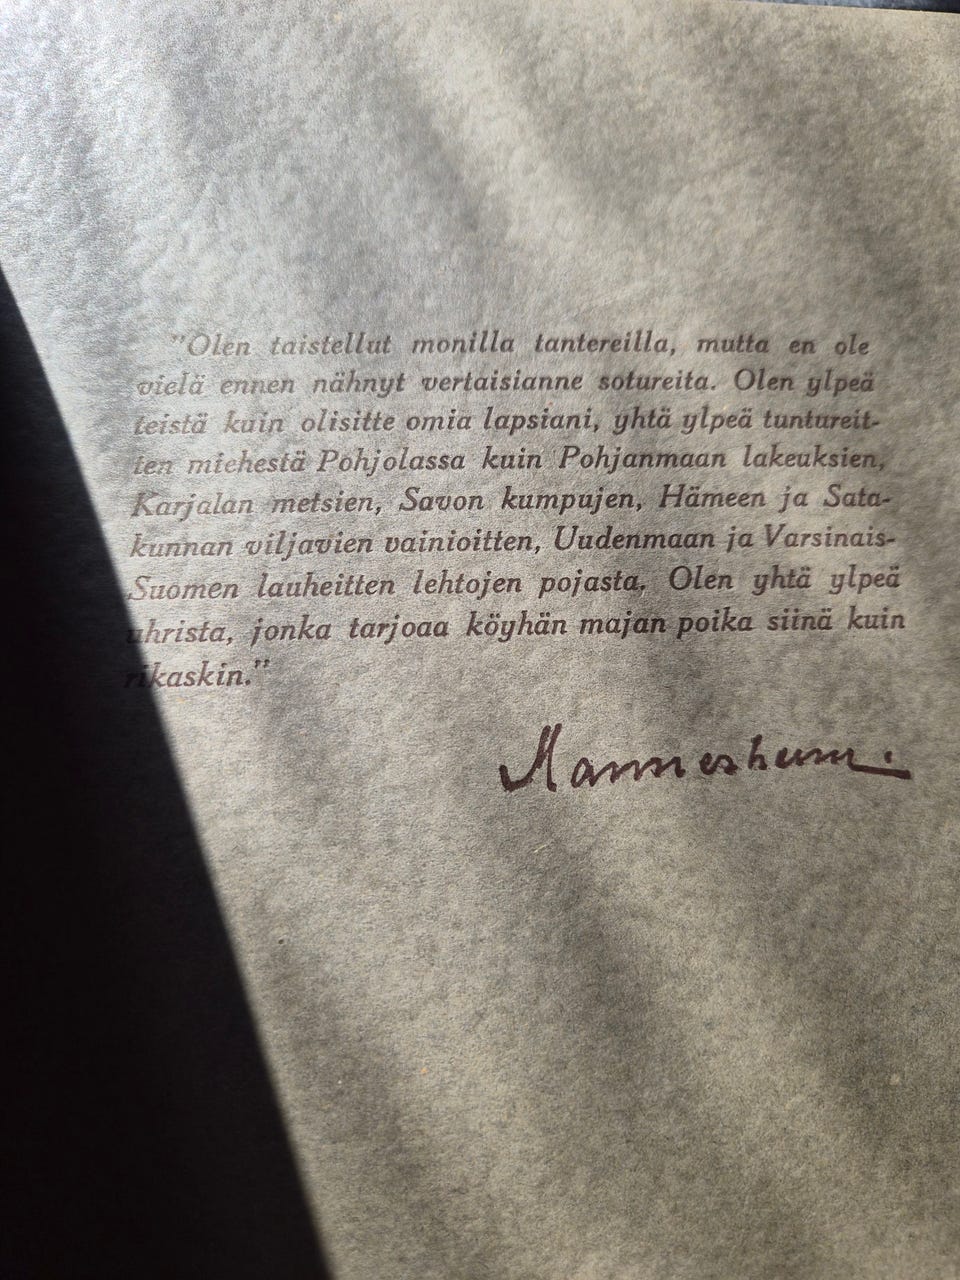 "Olen taistellut monilla tantereilla, mutta en ole
vielä ennen nähnyt vertaisianne sotureita. Olen ylpeä
teistä kuin olisitte omia lapsiani, yhtä ylpeä tuntureit-
ten miehestä Pohjolassa kuin Pohjanmaan lakeuksien,
Karjalan metsien, Savon kumpujen, Hämeen ja Sata-
kunnan viljavien vainioitten, Uudenmaan ja Varsinais-
Suomen lauheitten lehtojen pojasta. Olen yhtä ylpeä
uhrista, jonka tarjoaa köyhän majan poika siinä kuin
rikaskin."
Mannerheim.